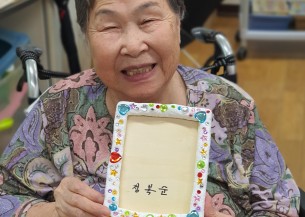 정복순